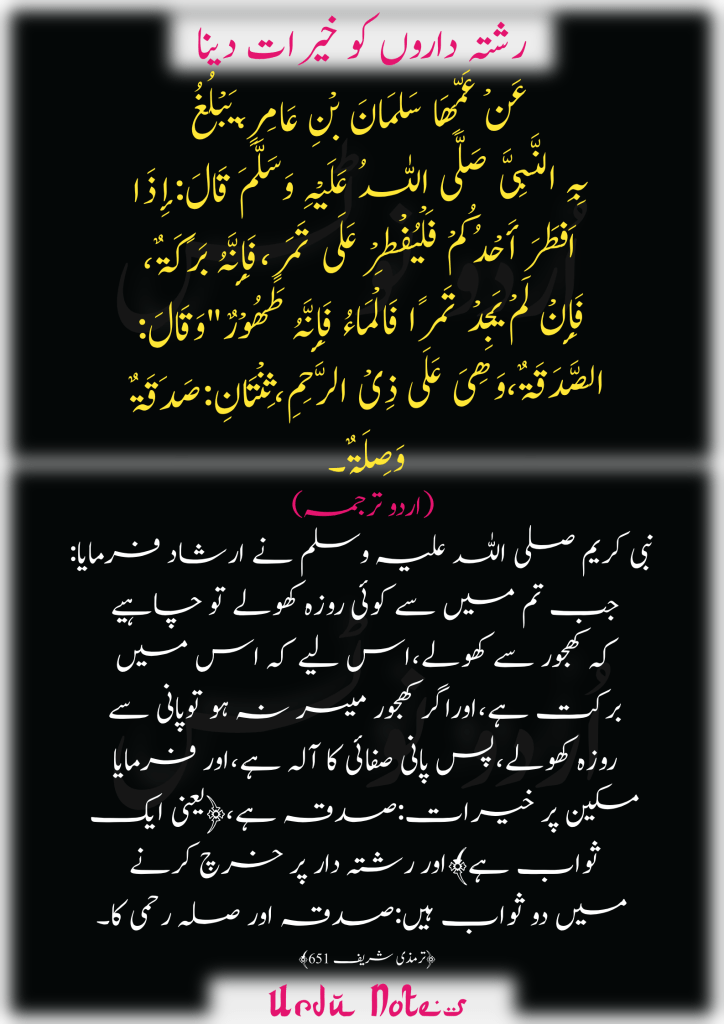 رشتہ داروں کو خیرات دینا
عَنْ عَمِّهَا سَلمَانَ بْنِ عَامِرٍ، يَبْلُغُ
بِهِ النَّبِيَّ صَلَّى اللهُ عَلَيْهِ وَسَلَّمَ قَالَ: إِذَا
اَفطَرَ أَحْدُكُمْ فَلْيُفْطِرْ عَلَى تَمَرٍ، فَإِنَّهُ بَرَكَةٌ،
فَإِنْ لَمْ يَجِدْ تَمرًا فَالْمَاءُ فَإِنَّهُ طَهُوْرٌ" وَقَالَ:
الصَّدَقَةٌ، وَهِيَ عَلَى ذِيْ الرَّحِمِ، ثِنْتَانِ: صَدَقَةٌ
وَصِلَةٌ۔
(اردو ترجمہ)
نبی کریم صلی اللہ علیہ وسلم نے ارشاد فرمایا:
جب تم میں سے کوئی روزہ کھولے تو چاہیے
کہ کھجور سے کھولے،اس لیے کہ اس میں
برکت ہے،اوراگر کھجور میسر نہ ہو توپانی سے
روزہ کھولے،پس پانی صفائی کا آلہ ہے،اور فرمایا
مسکین پر خیرات:صدقہ ہے،﴿یعنی ایک
ثواب ہے﴾اور رشتہ دار پر خرچ کرنے
میں دو ثواب ہیں:صدقہ اور صلہ رحمی کا۔
﴿ترمذی شریف 651﴾
Urdu Notes